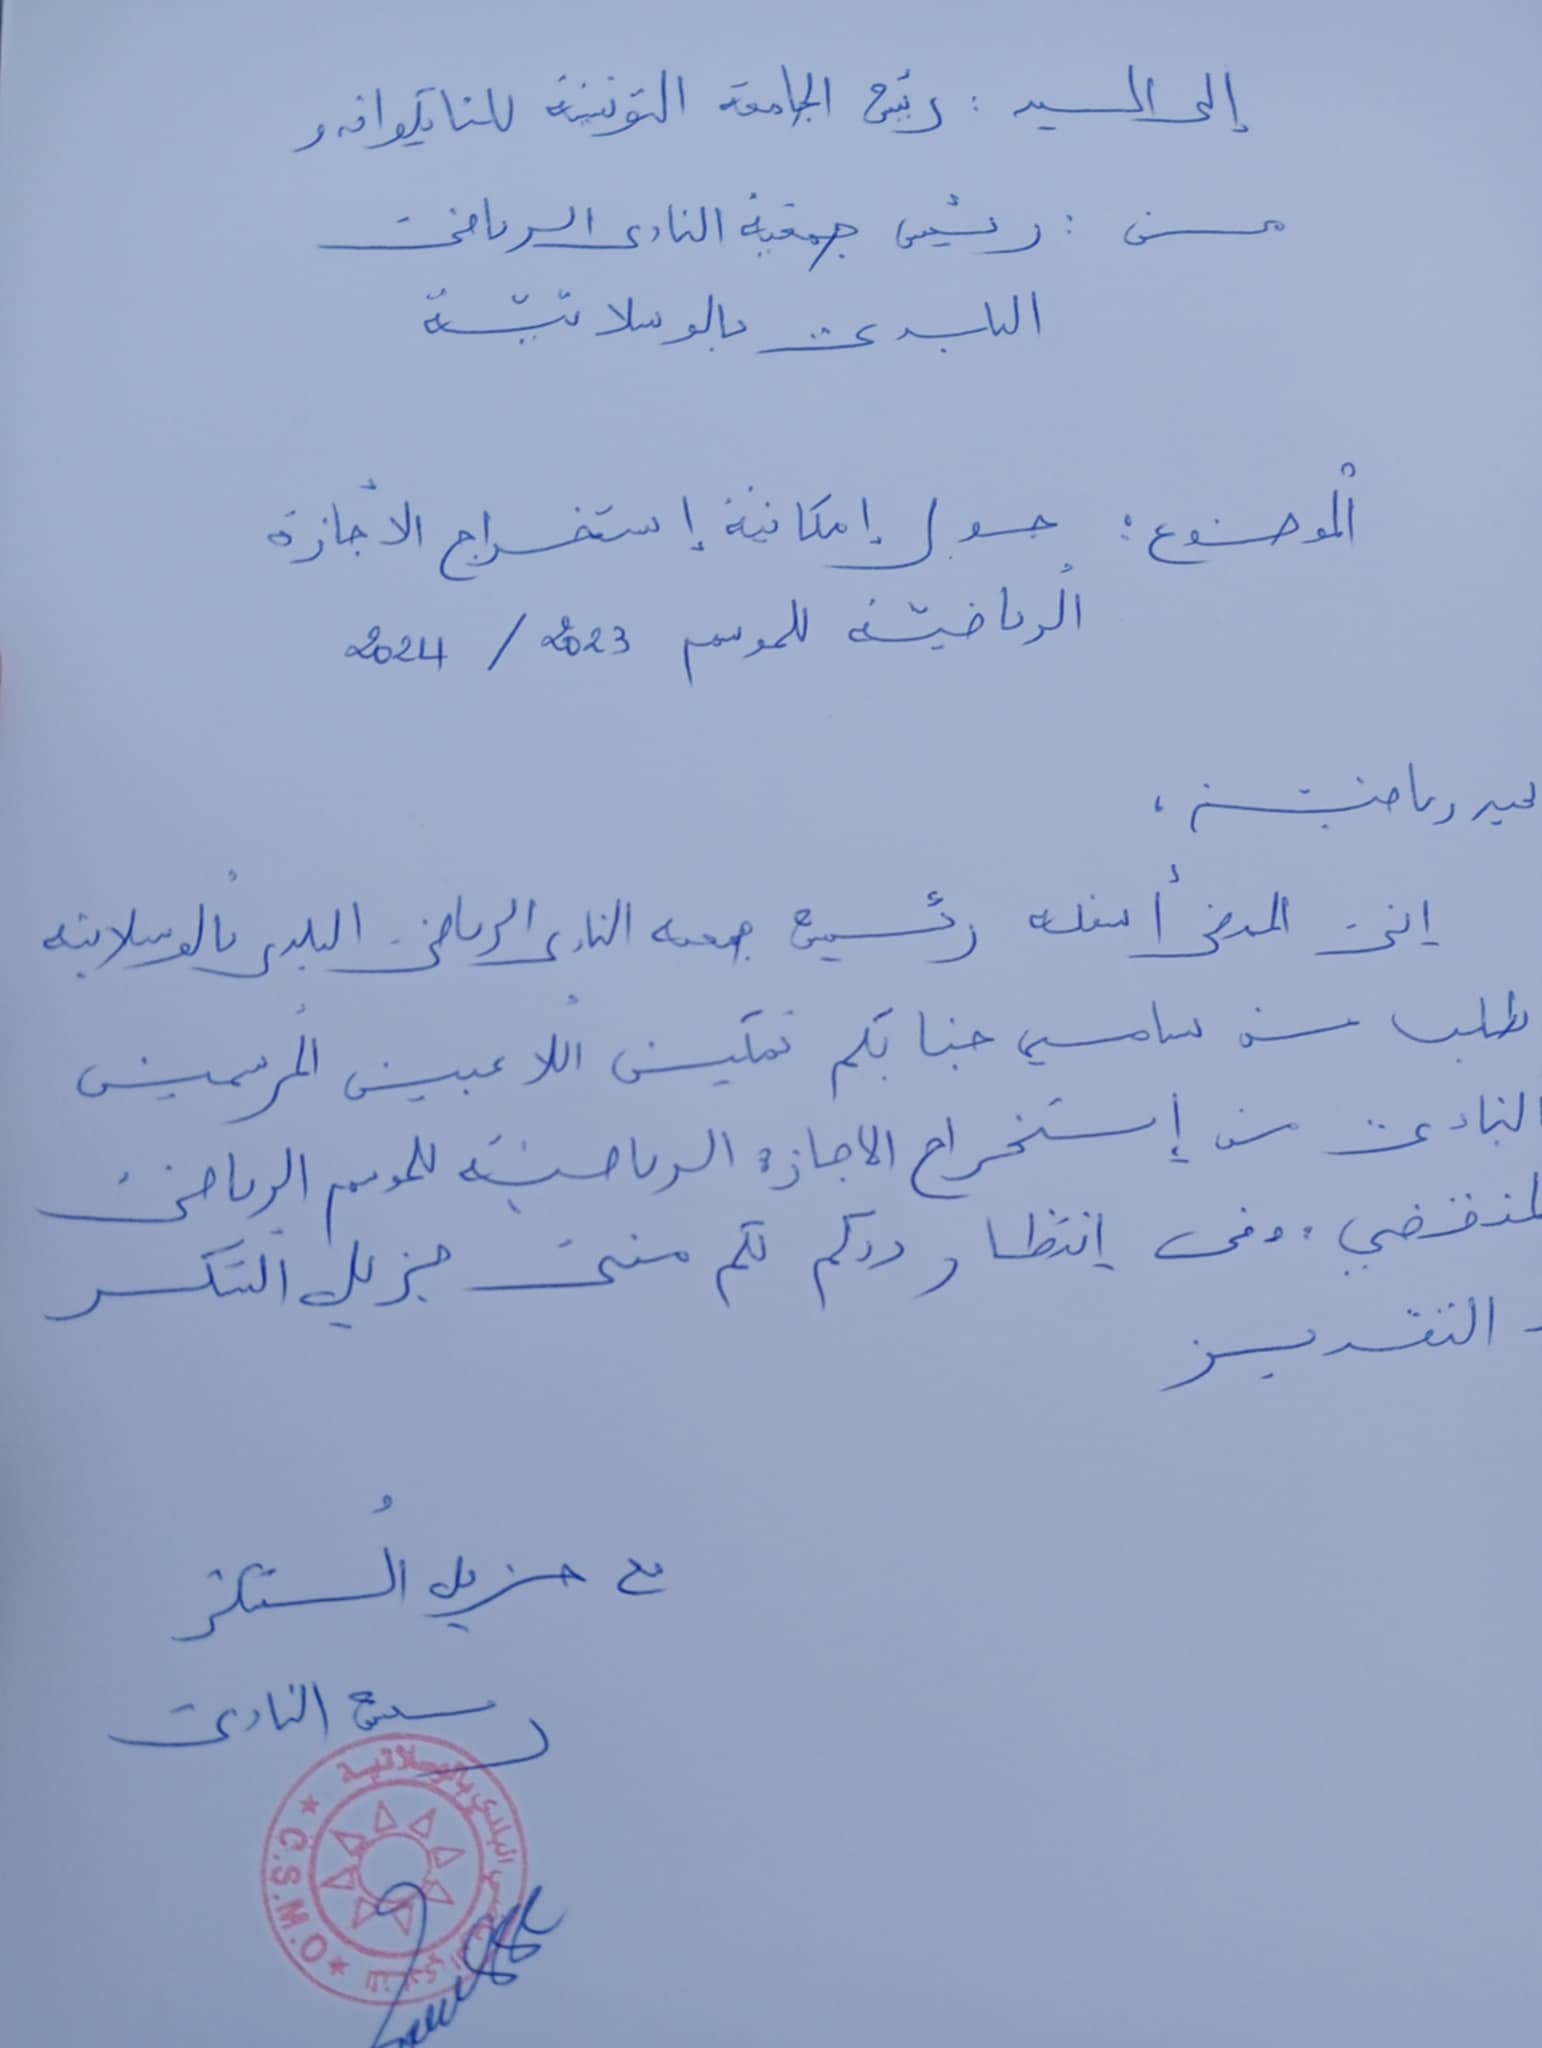 إلى السيد : رئيس الجامعة التونسية للتايكواندو
من : رئيس جمعية النادي الرياضي
البلدي بالوسلاتيّة
الموضوع : حول إمكانية إستخراج الأجازة
الرياضيّة للموسم 2023 / 2024
تحية رياضيّة ،
إني الممضي أسفله رئيس جمعية النادي الرياضي البلدي بالوسلاتية
نطلب من سامي جنابكم تمكين اللاعبين المرسمين
بالنادي من إستخراج الاجازة الرياضيّة للموسم الرياضي
المنقضي . وفي إنتظار ردكم لكم مني جزيل الشكر
و التقدير
مع جزيل الشكر
رئيس النادي
النادي الرياضي البلدي بالوسلاتية
★ C.S.M.O ★